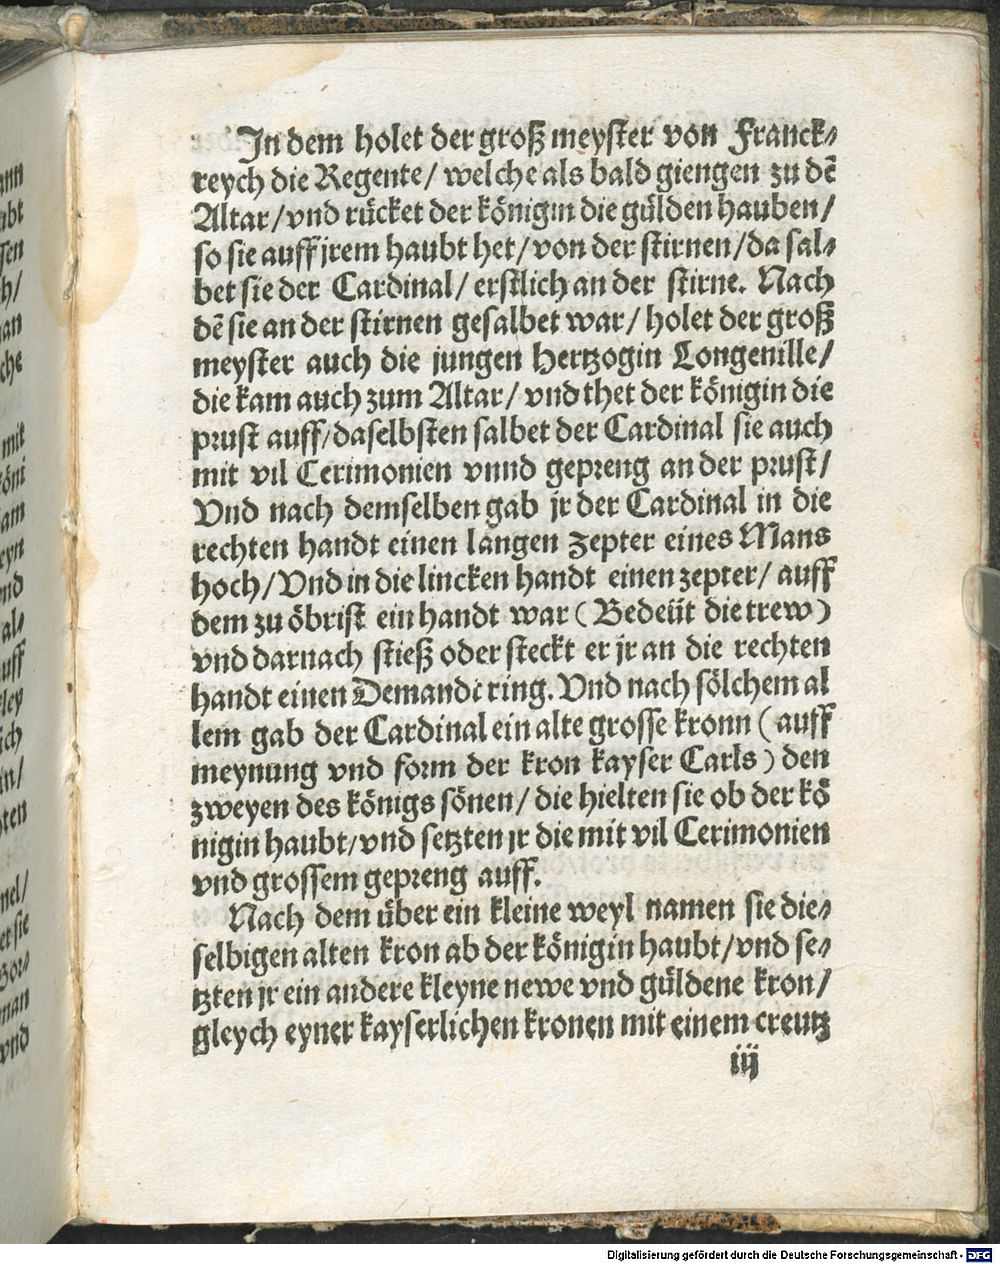 In dem holet der groß meyster von Franck⸗
reych die Regente/ welche als bald giengen zu dē
Altar/vnd rücket der königin die gülden hauben/
so sie auff jrem haubt het/von der stirnen/da sal⸗
bet sie der Cardinal/ erstlich an der stirne. Nach
dē sie an der stirnen gesalbet war/ holet der groß
meyster auch die jungen Hertzogin Longenille/
die kam auch zum Altar/ vnd thet der königin die
prust auff/daselbsten salbet der Cardinal sie auch
mit vil Cerimonien vnnd gepreng an der prust/
Vnd nach demselben gab jr der Cardinal in die
rechten handt einen langen zepter eines Mans
hoch/Vnd in die lincken handt einen zepter/ auff
dem zu öbrist ein handt war (Bedeüt die trew)
vnd darnach stieß oder steckt er jr an die rechten
handt einen Demandt ring. Vnd nach sölchem al
lem gab der Cardinal ein alte grosse kronn (auff
meynung vnd form der kron kayser Carls) den
zweyen des königs sönen/ die hielten sie ob der kö
nigin haubt/vnd setzten jr die mit vil Cerimonien
vnd grossem gepreng auff.
Nach dem über ein kleine weyl namen sie die⸗
selbigen alten kron ab der königin haubt/vnd se⸗
tzten jr ein andere kleyne newe vnd güldene kron/
gleych eyner kayserlichen kronen mit einem creutz
iij
Digitalisierung gefördert durch die Deutsche Forschungsgemeinschaft - DFG